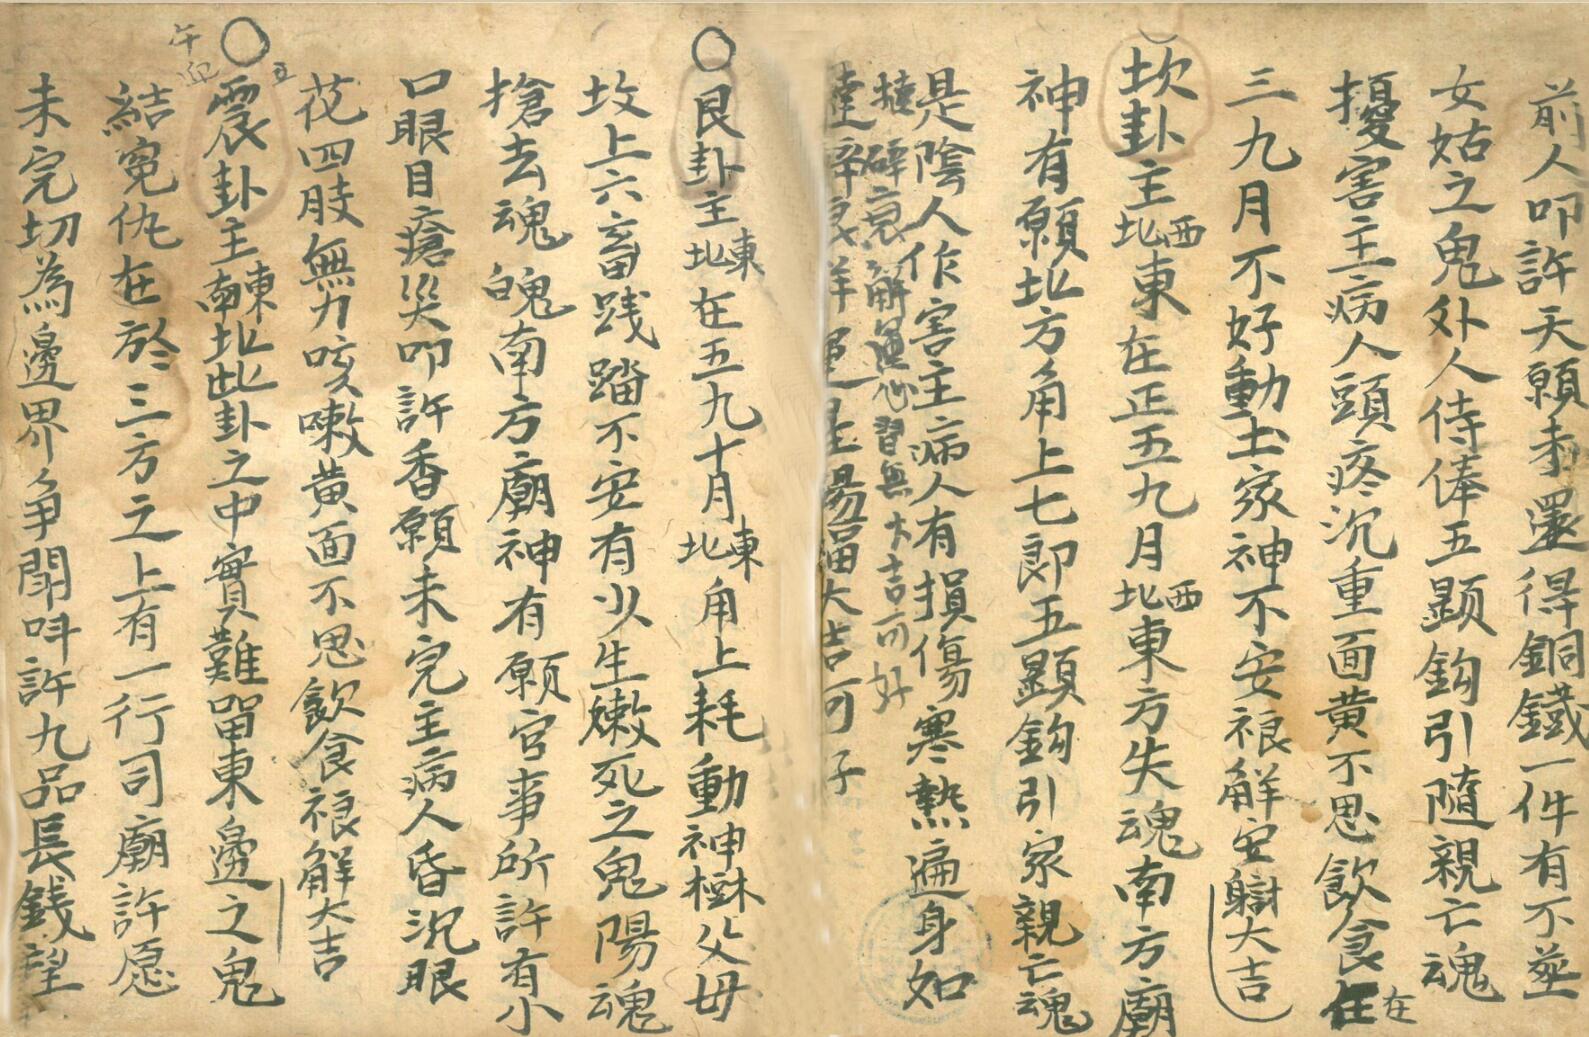 前人叩許天願未還得銅鐵一件有不葬
女姑之鬼外人侍俸五顕鈎引隨親亡魂
擾害主病人頭疼沉重面黄不思飲食在
在
三九月不好動土家神不安禳解安謝大吉
坎卦主西北東在正五九月西北東方失魂南方廟
神有願北方角上七郎五顕鈎引家親亡魂
是陰人作害主病人有損傷寒熱遍身如
解 無大吉可好
大吉可子
艮卦主東北在五九十月東北角上耗動神樹父母
坟上六畜践踏不安有少生嫩死之鬼陽魂
搶去魂魄南方廟神有願官事所許有小
口眼目瘡災叩許香願未完主病人昏沉眼
花四肢無力咳嗽黄面不思飲食禳解大吉
五
震卦主東南北此卦之中實難留東邊之鬼
午迎
結寃仇在於三方之上有一行司廟許愿
未完切為邊界争鬧叫許九品長銭望